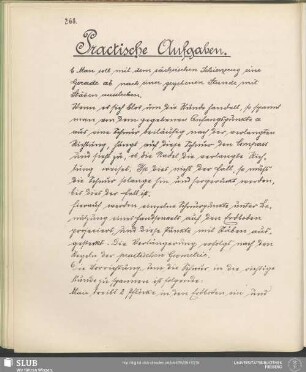 268.
Practische Aufgaben.
1. Man soll mit dem sächsischen Schienzeug eine
Gerade ab nach einer gegebenen Stunde mit
Stäben ausstecken.
Wenn es sich blos um die Stunde handelt, so spannt
man von dem gegebenen Anfangspunkte a
aus eine Schnur beiläufig nach der verlangten
Richtung, hängt auf diese Schnur den Compass
und sieht zu, ob die Nadel die verlangte Rich-
tung weist. Ist dies nicht der Fall, so muss
die Schnur solange hin und hergerückt werden,
bis dies der Fall ist.
Hierauf werden einzelne Schnurpunkte, unter Be-
nützung eines Handsenkels auf den Erdboden
projeciert, und diese Punkte mit Stäben aus-
gesteckt. Die Verlängerung erfolgt nach den
Regeln der practischen Geometrie.
Die Vorrichtung, um die Schnur in die richtige
Stunde zu spannen ist folgende:
Man treibt 2 Pflöcke in den Erdboden ein, und
SLUB
Wir führen Wissen.